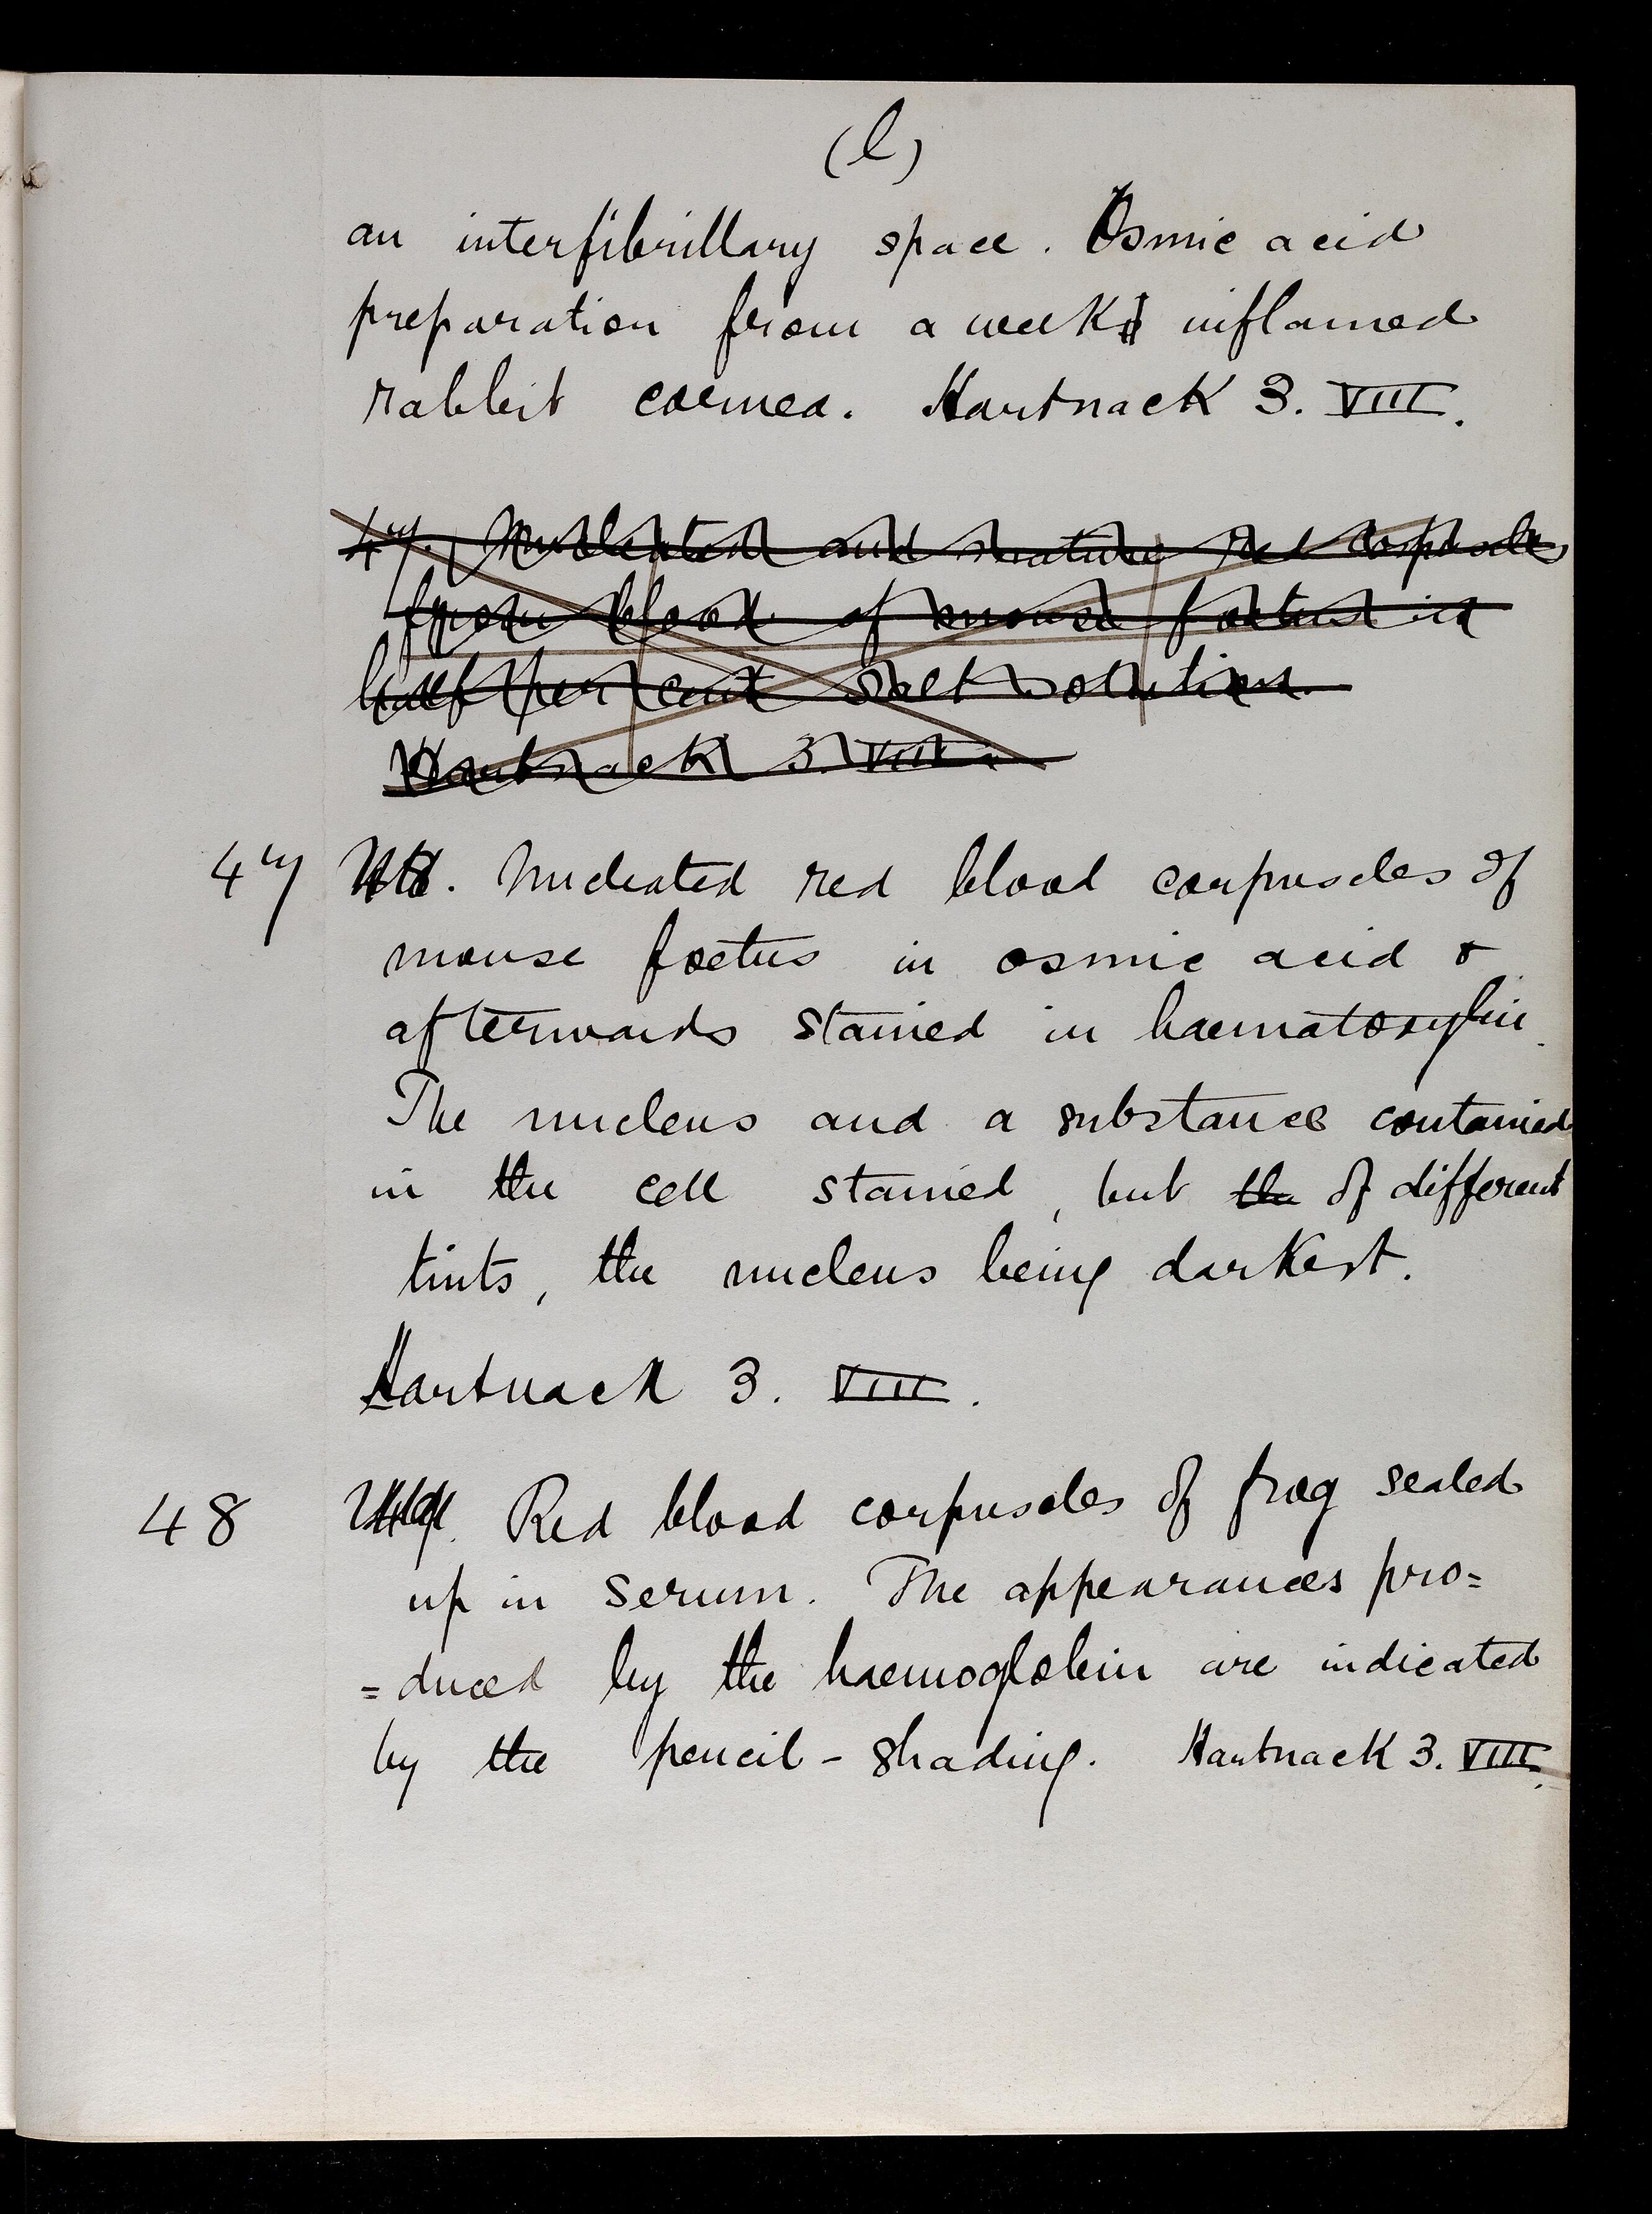 (l)
an interfibrillary space. Osmic acid
preparation from a week inflamed
rabbit cornea. Hartnack 3. VIII.
47. Nucleated and mature red corpuscles
from blood of mouse foetus in
half per cent salt solution.
Hartnack 3. VIII.
47 48. Nucleated red blood corpuscles of
mouse foetus in osmic acid &
afterwards stained in haematoxylin.
The nucleus and a substance contained
in the cell stained, but the of different
tints, the nucleus being darkest.
Hartnack 3. VIII.
48 Red blood corpuscles of frog sealed
up in serum. The appearances pro=
=duced by the haemoglobin are indicated
by the pencil-shading. Hartnack 3. VIII.